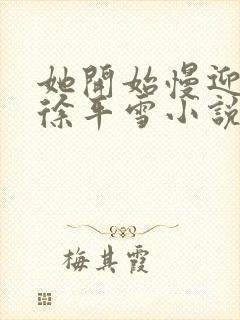 她開始慢迎
徐平雪小說
梅其霞